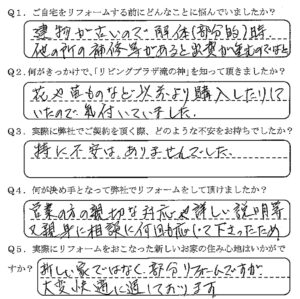 Q1. ご自宅をリフォームする前にどんなことに悩んでいましたか?
建物が古いので解体(部分的)時
他の所の補修等があると出費が
Q2. 何がきっかけで、「リビングプラザ滝の神」を知って頂きましたか?
花や苗ものなど以前より購入したりして
いたので気付いていました。
Q3. 実際に弊社でご契約を頂く際、どのような不安をお持ちでしたか?
特に不安はありませんでした.
Q4. 何が決め手となって弊社でリフォームをして頂けましたか?
営業の方の親切な対応や詳しい説明等
又親身に相談に何回も応じて下さったため
Q5. 実際にリフォームをおこなった新しいお家の住み心地はいかがで
すか?
新しい家ではなく部分リフォームですが
大変快適に過しております